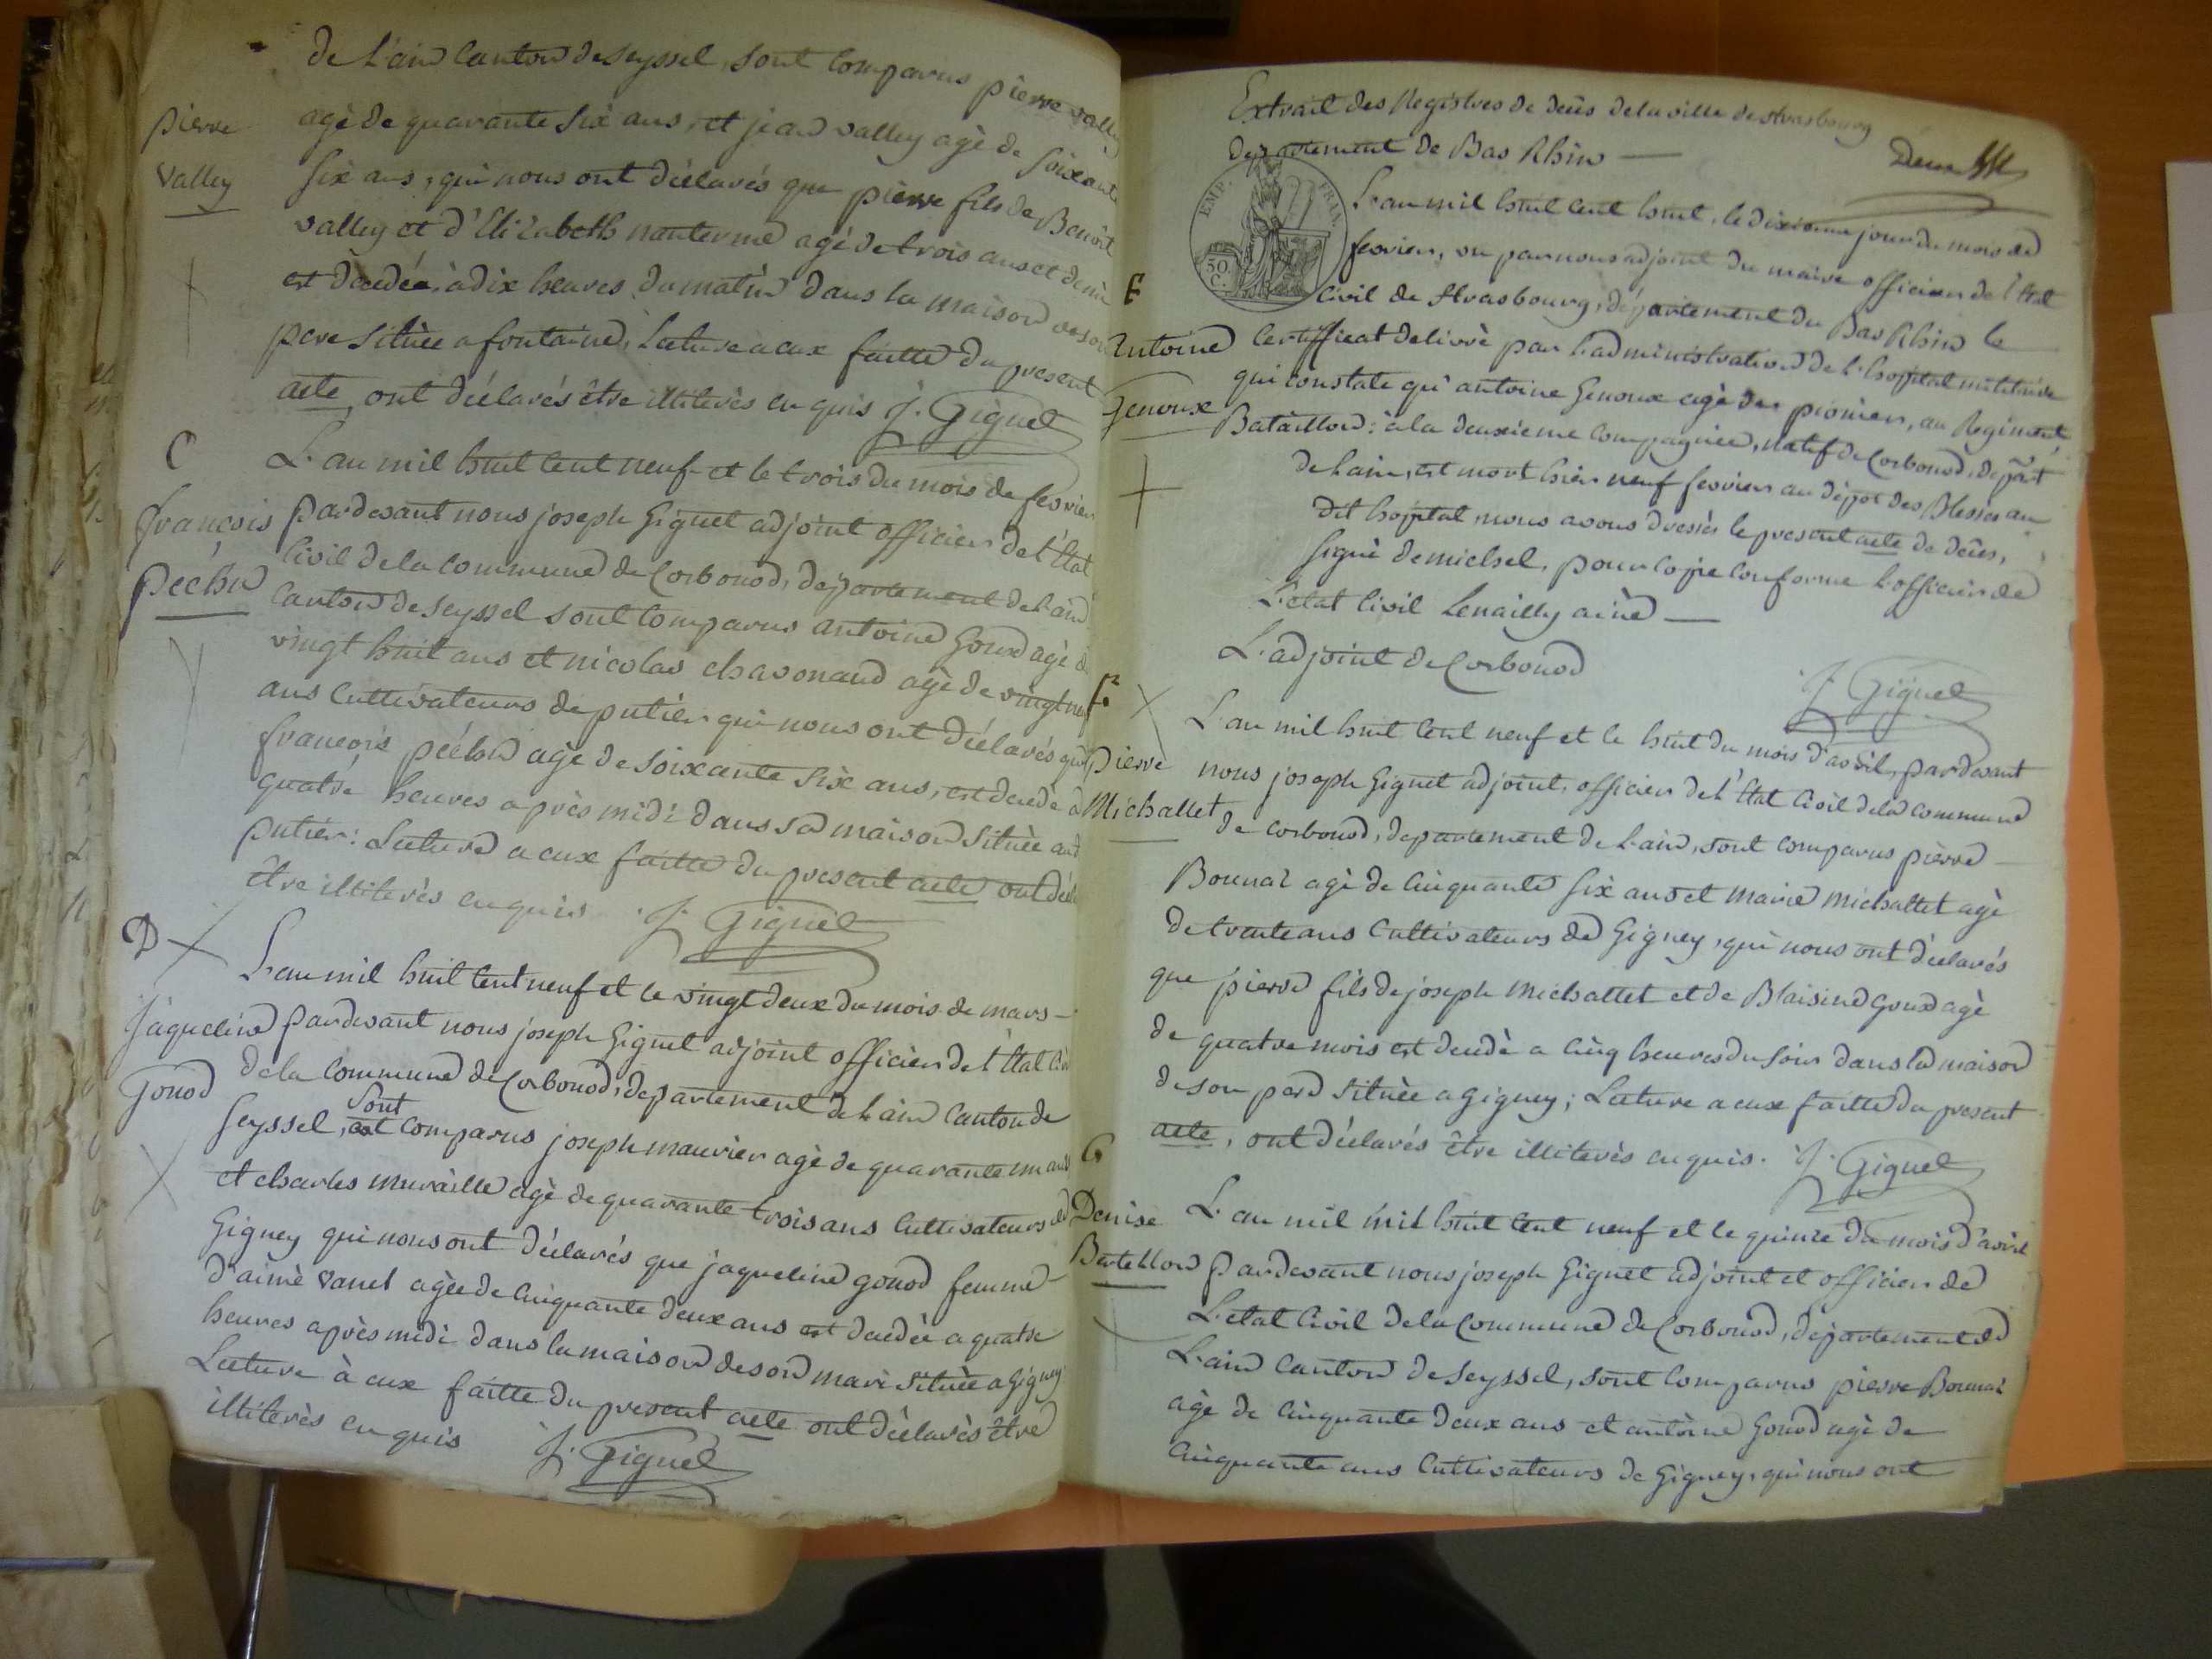 de L'ain Canton de Seyssel, sont Comparus pierre valley
pierre
valley
agé de quarante six ans, et jean valley agé de soixante
six ans, qui nous ont déclarés que pierre fils de Benoit
valley et d'Elizabeth nanterme agé de trois ans et demie
est décédée, à dix heures du matin dans la maison de son
pere située a fontaine, Lecture a eux faitte du present
acte, ont déclarés être illiterès enquis J. Giguet
C
françois
péchu
L'an mil huit cent neuf et le trois du mois de fevrier
pardevant nous joseph Giguet adjoint officier de l'Etat
Civil de la Commune de Corbonod, departement de l'ain
Canton de Seyssel sont Comparus antoine Goux agé de
vingt huit ans et nicolas chavonand agé de vingt neuf
ans Cultivateurs de putier qui nous ont déclarés que
françois péchu agé de soixante six ans, est décédé a
quatre heures après midi dans sa maison située aud
putier: Lecture a eux faitte du present acte ont déclarés
être illiterès enquis J. Giguet
D
Jaqueline
Gonod
L'an mil huit cent neuf et le vingt deux du mois de mars
pardevant nous joseph Giguet adjoint officier de l'Etat Civil
de la Commune de Corbonod, departement de Lain Canton de
Seyssel, sont est Comparus joseph maurier agé de quarante un ans
et charles muraille agé de quarante trois ans Cultivateurs de
Gigney qui nous ont déclarés que jaqueline gonod femme
d'aimé vanel agée de Cinquante deux ans est décédée a quatre
heures après midi dans la maison de son mari située a Gigney
Lecture à eux faitte du present acte ont déclarés être
illiterès enquis J. Giguet
Extrait des Registres de décès de la ville de Strasbourg
departement de Bas Rhin
EMP. FRAN.
50 C.
E
Antoine
Genoux
L'an mil huit cent huit, le dixieme jour du mois de
fevrier, vu par nous adjoint du maire officier de l'Etat
Civil de Strasbourg, departement du Bas Rhin le
Certifficat delivré par L'administration de L'hopital militaire
qui constate qu'antoine Genoux agé de pionier, au Regiment,
Bataillon: à la deuxieme Compagnie, natif de Corbonod, depart
de Lain, est mort hier neuf fevrier au dépot des Blessés au
dit hopital, nous avons dressés le present acte de décès,
signé demichel, pour Copie Conforme L'officier de
L'etat Civil Lenailly ainé
L'adjoint de Corbonod
J. Giguet
F.
pierre
Michallet
L'an mil huit cent neuf et le huit du mois d'avril, pardevant
nous joseph Giguet adjoint, officier de l'Etat Civil de la commune
de corbonod, departement de L'ain, sont comparus pierre
Bonnaz agé de Cinquante six ans et marie michallet agé
de trente ans Cultivateurs de Gigney, qui nous ont déclarés
que pierre fils de joseph Michallet et de Blaisine Goux agé
de quatre mois est décédé a cinq heures du soir dans la maison
de son pere située a Gigney; Lecture a eux faitte du present
acte, ont déclarés être illiterès enquis. J. Giguet
G
Denise
Bertellon
L'an mil mil huit cent neuf et le quinze du mois d'avril
pardevant nous joseph Giguet adjoint et officier de
L'etat Civil de la Commune de Corbonod, departement de
L'ain Canton de Seyssel, sont Comparus pierre Bonnaz
agé de Cinquante deux ans et antoine Gonod agé de
Cinquante ans Cultivateurs de Gigney, qui nous ont